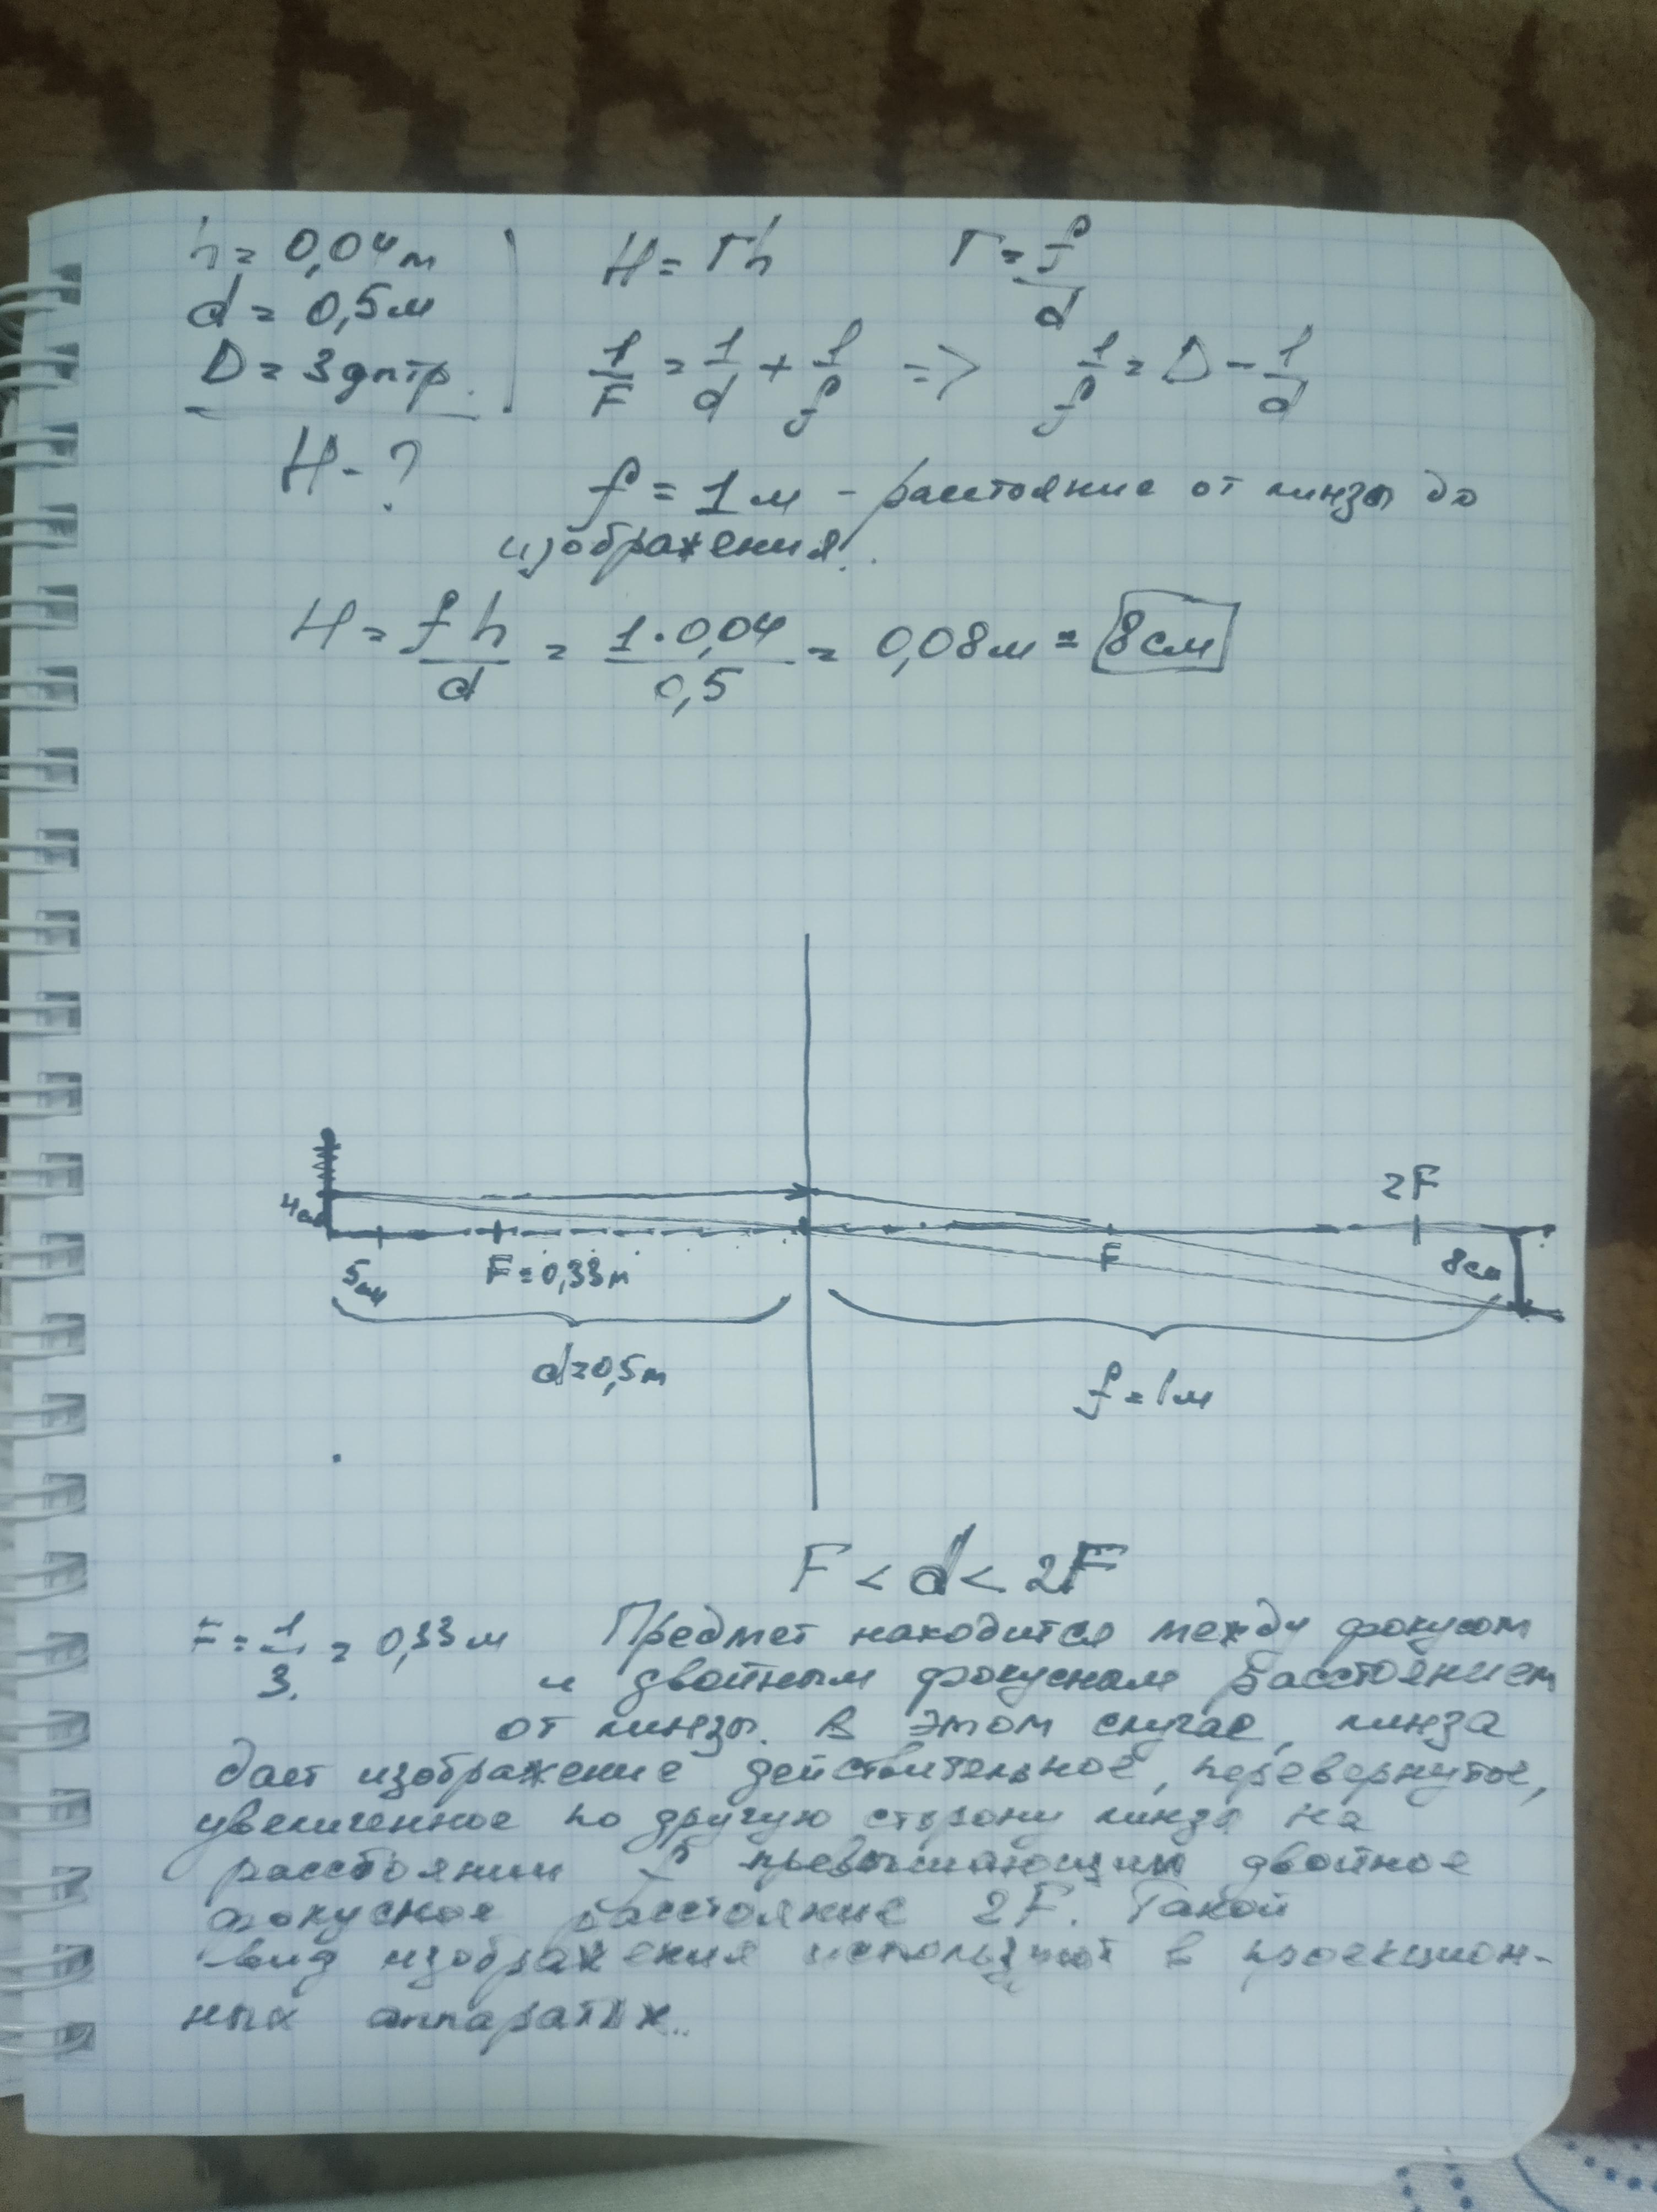 h = 0,04 м
H = Гh
Г = f/d
d = 0,5 м
D = 3 дптр.
1/F = 1/d + 1/f => 1/f = D - 1/d
H - ?
f = 1 м - расстояние от линзы до
изображения.
H = fh/d = 1·0,04/0,5 = 0,08 м = 8 см
2F
4 см
5 см
F = 0,33 м
F
8 см
d = 0,5 м
f = 1 м
F < d < 2F
F = 1/3 = 0,33 м Предмет находится между фокусом
и двойным фокусным расстоянием
от линзы. В этом случае, линза
дает изображение действительное, перевернутое,
увеличенное по другую сторону линзы на
расстоянии f превышающим двойное
фокусное расстояние 2F. Такой
вид изображения используют в проекцион-
ных аппаратах..